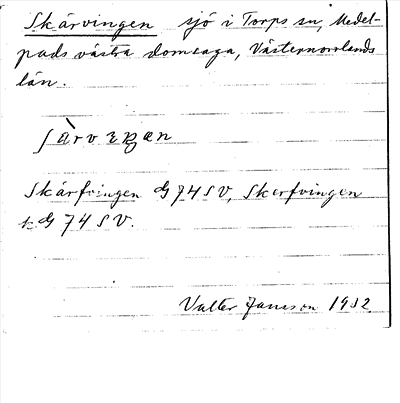 Skärvingen sjö i Torps sn, Medel-
pads västra domsaga, Västernorrlands
län.
Skärfvingen G 74 SV, Skerfvingen
k. G 74 SV.
Valter Jansson 1932